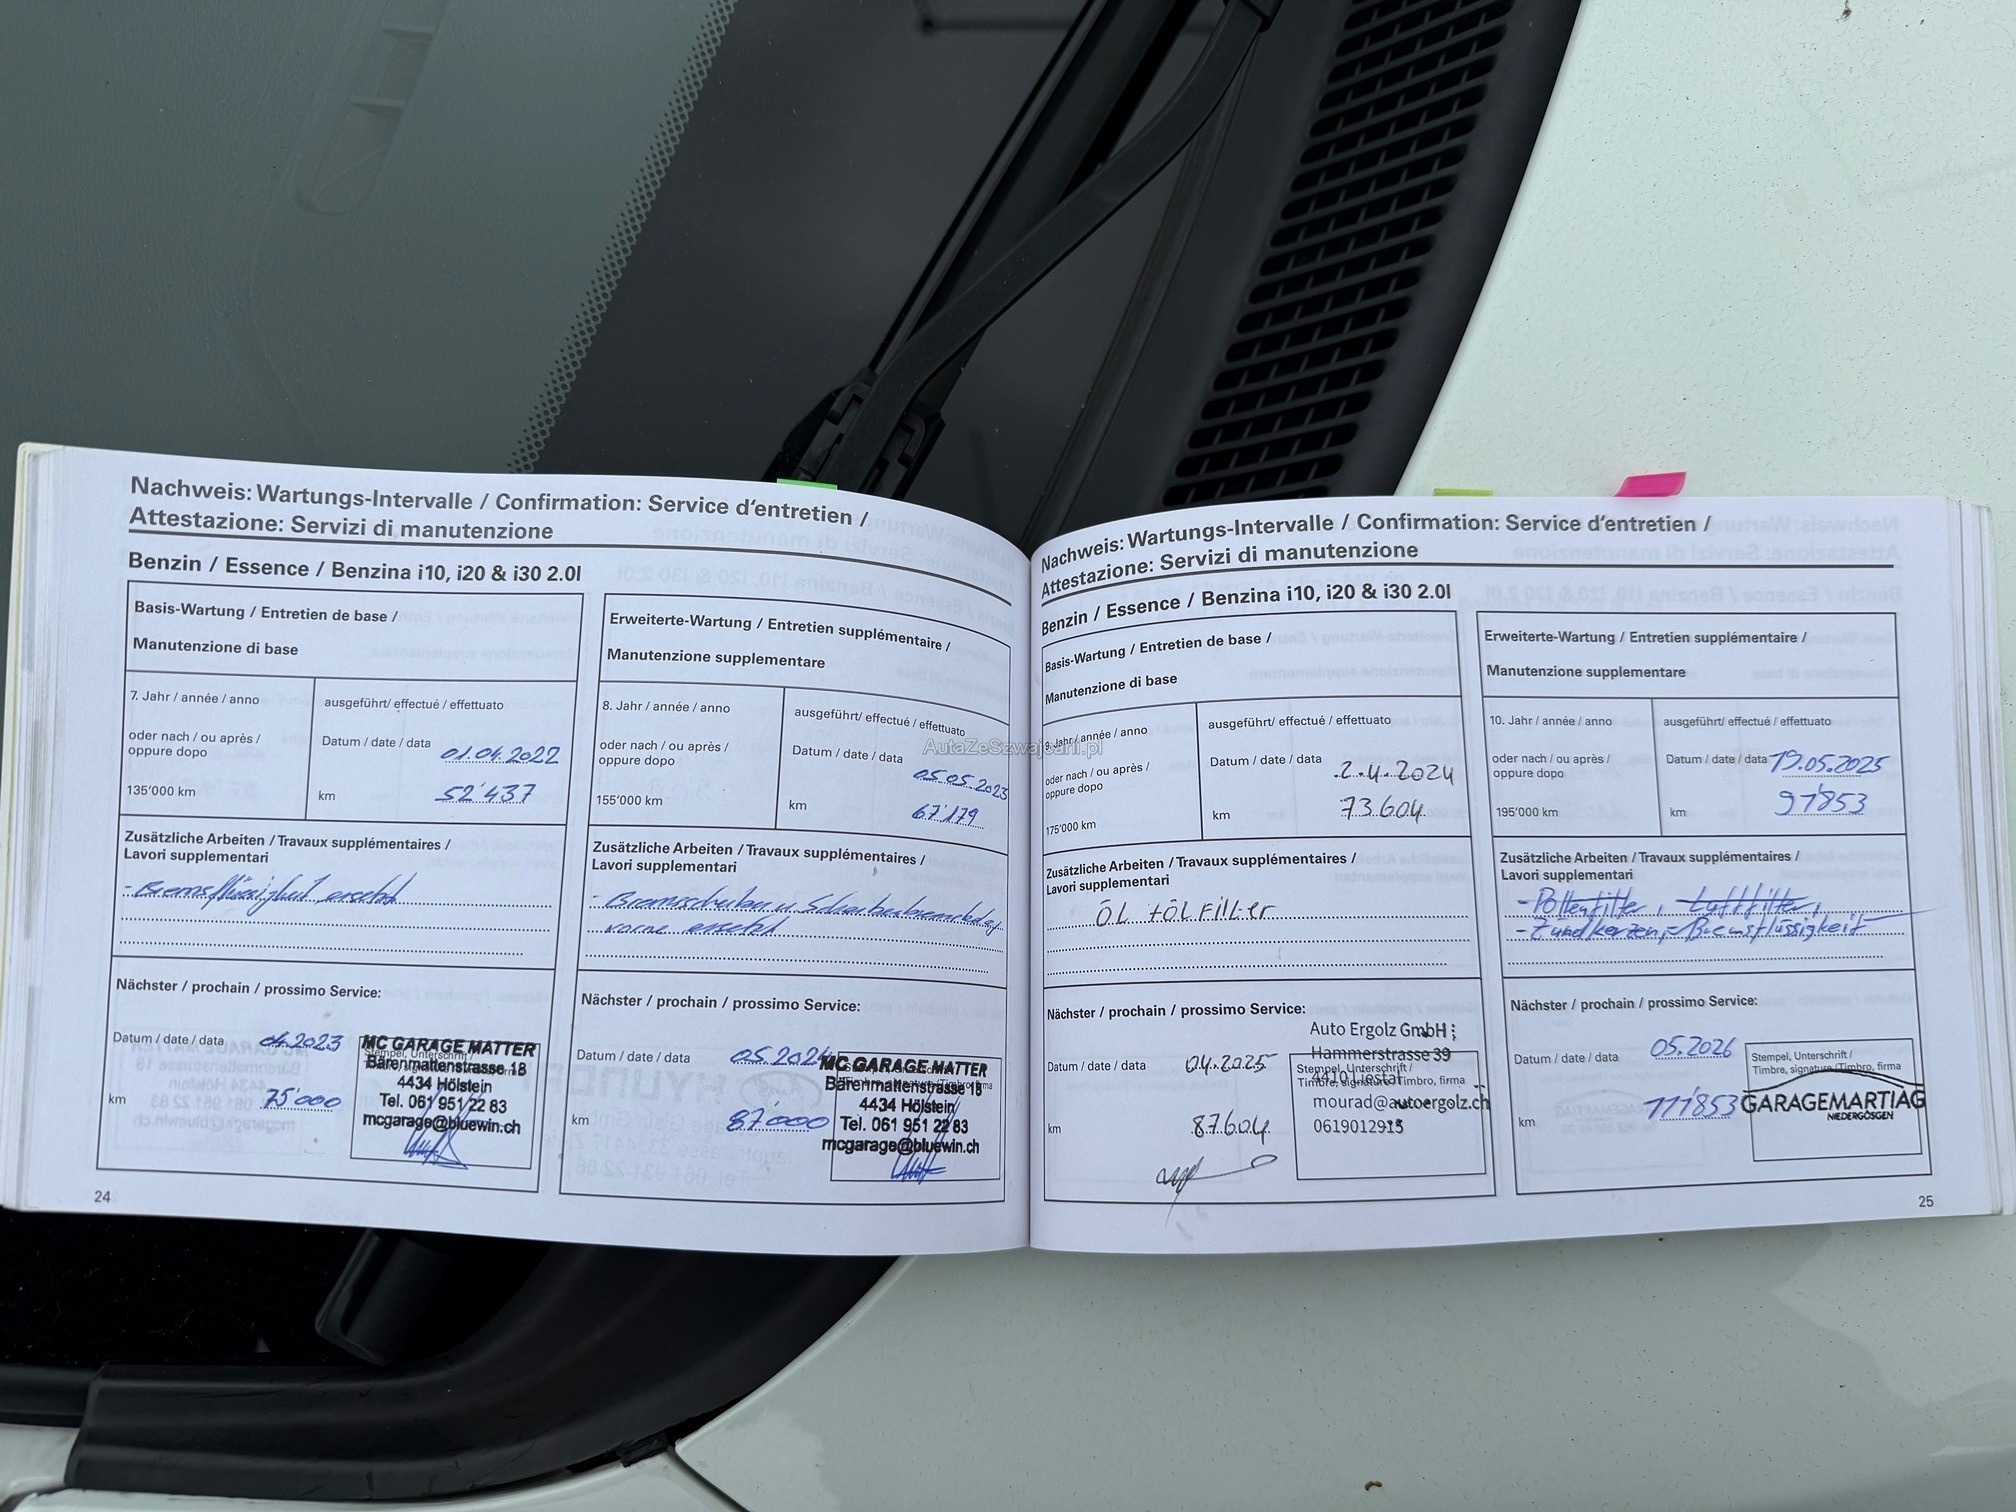 Nachweis: Wartungs-Intervalle / Confirmation: Service d'entretien /
Attestazione: Servizi di manutenzione
Benzin / Essence / Benzina i10, i20 & i30 2.0l
Basis-Wartung / Entretien de base /
Manutenzione di base
7. Jahr / année / anno
oder nach / ou après /
oppure dopo
135'000 km
ausgeführt/ effectué / effettuato
Datum / date / data 01.04.2022
km 52'437
Zusätzliche Arbeiten / Travaux supplémentaires /
Lavori supplementari
- Bremsflüssigkeit ersetzt
Nächster / prochain / prossimo Service:
Datum / date / data 04.2023
km 75'000
Stempel, Unterschrift /
MC GARAGE MATTER
Bärenmattenstrasse 18
4434 Hölstein
Tel. 061 951 22 83
mcgarage@bluewin.ch
24
Erweiterte-Wartung / Entretien supplémentaire /
Manutenzione supplementare
8. Jahr / année / anno
oder nach / ou après /
oppure dopo
155'000 km
ausgeführt/ effectué / effettuato
Datum / date / data 05.05.2023
km 67'179
Zusätzliche Arbeiten / Travaux supplémentaires /
Lavori supplementari
- Bremsscheiben u. 
vorne ersetzt
Nächster / prochain / prossimo Service:
Datum / date / data 05.2024
km 87'000
MC GARAGE MATTER
Bärenmattenstrasse 18
4434 Hölstein
Tel. 061 951 22 83
mcgarage@bluewin.ch
AutaZeSzwajcarii.pl
Nachweis: Wartungs-Intervalle / Confirmation: Service d'entretien /
Attestazione: Servizi di manutenzione
Benzin / Essence / Benzina i10, i20 & i30 2.0l
Basis-Wartung / Entretien de base /
Manutenzione di base
9. Jahr / année / anno
oder nach / ou après /
oppure dopo
175'000 km
ausgeführt/ effectué / effettuato
Datum / date / data 2.4.2024
km 73.604
Zusätzliche Arbeiten / Travaux supplémentaires /
Lavori supplementari
ÖL + ÖLFilter
Nächster / prochain / prossimo Service:
Datum / date / data 04.2025
km 87.604
Stempel, Unterschrift /
Timbre, signature/Timbro, firma
Auto Ergolz GmbH
Hammerstrasse 39
4410 Liestal
mourad@autoergolz.ch
0619012915
Erweiterte-Wartung / Entretien supplémentaire /
Manutenzione supplementare
10. Jahr / année / anno
oder nach / ou après /
oppure dopo
195'000 km
ausgeführt/ effectué / effettuato
Datum / date / data 19.05.2025
km 91'853
Zusätzliche Arbeiten / Travaux supplémentaires /
Lavori supplementari
- Pollenfilter, Luftfilter,
- Zundkerzen, Bremsflüssigkeit
Nächster / prochain / prossimo Service:
Datum / date / data 05.2026
km 111'853
Stempel, Unterschrift /
Timbre, signature/Timbro, firma
GARAGEMARTIAG
NIEDERGÖSGEN
25